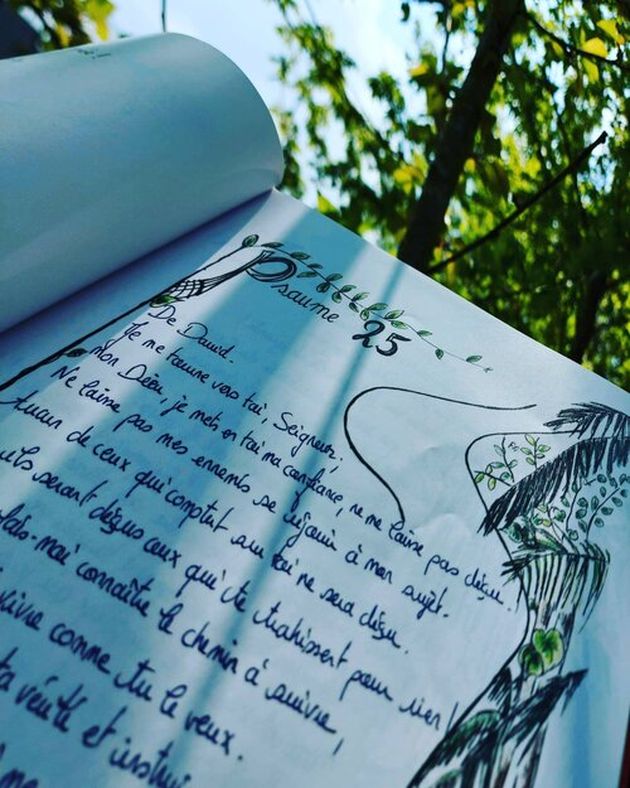 Psaume 25
De David.
Je me tourne vers toi, Seigneur,
mon Dieu, je mets en toi ma confiance, ne me laisse pas déçu !
Ne laisse pas mes ennemis se réjouir à mon sujet.
Aucun de ceux qui comptent sur toi ne sera déçu.
ils seront déçus ceux qui te trahissent pour rien !
Fais-moi connaître le chemin à suivre,
vivre comme tu le veux.
ta vérité et instrui